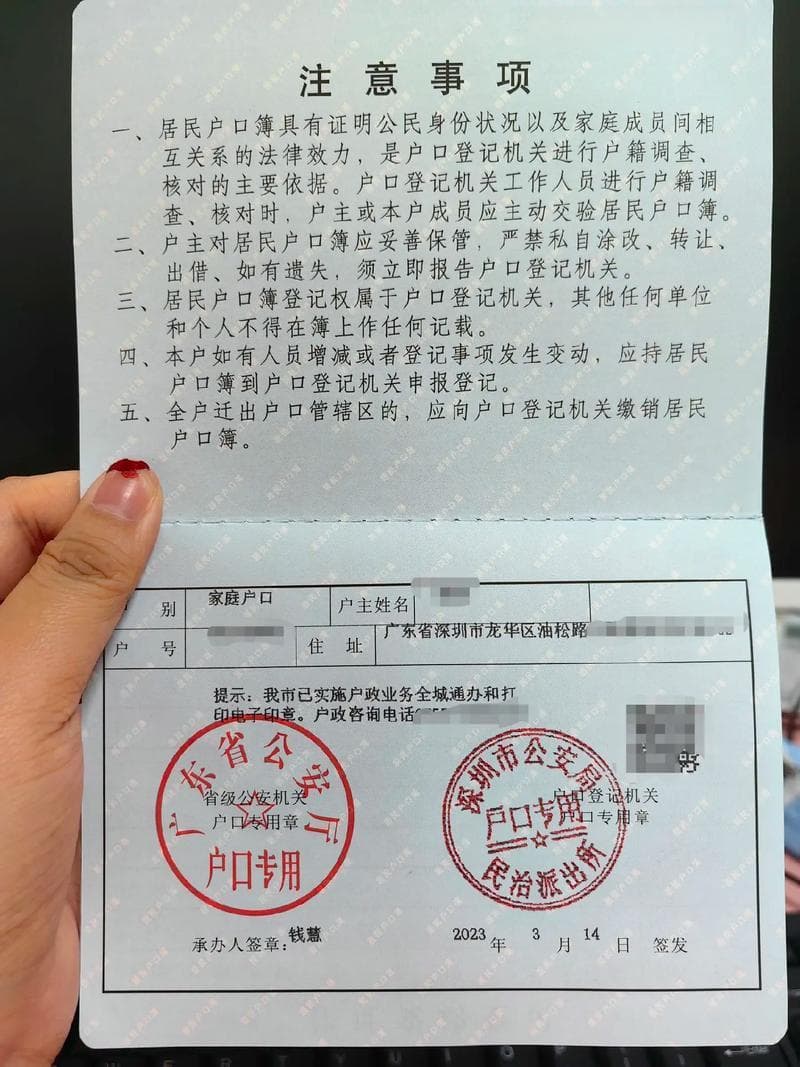 注意事项
一、居民户口簿具有证明公民身份状况以及家庭成员间相
互关系的法律效力，是户口登记机关进行户籍调查、
核对的主要依据。户口登记机关工作人员进行户籍调
查、核对时，户主或本户成员应主动交验居民户口簿。
二、户主对居民户口簿应妥善保管，严禁私自涂改、转让、
出借、如有遗失，须立即报告户口登记机关。
三、居民户口簿登记权属于户口登记机关，其他任何单位
和个人不得在簿上作任何记载。
四、本户如有人员增减或者登记事项发生变动，应持居民
户口簿到户口登记机关申报登记。
五、全户迁出户口管辖区的，应向户口登记机关缴销居民
户口簿。
户别 家庭户口 户主姓名
户号 住址 广东省深圳市龙华区油松路
提示：我市已实施户政业务全城通办和打
印电子印章。户政咨询电话
广东省公安厅
省级公安机关
户口专用章
户口专用
深圳市公安局
户口登记机关
户口专用章
户口专用
民治派出所
承办人签章：钱慧 2023年3月14日 签发